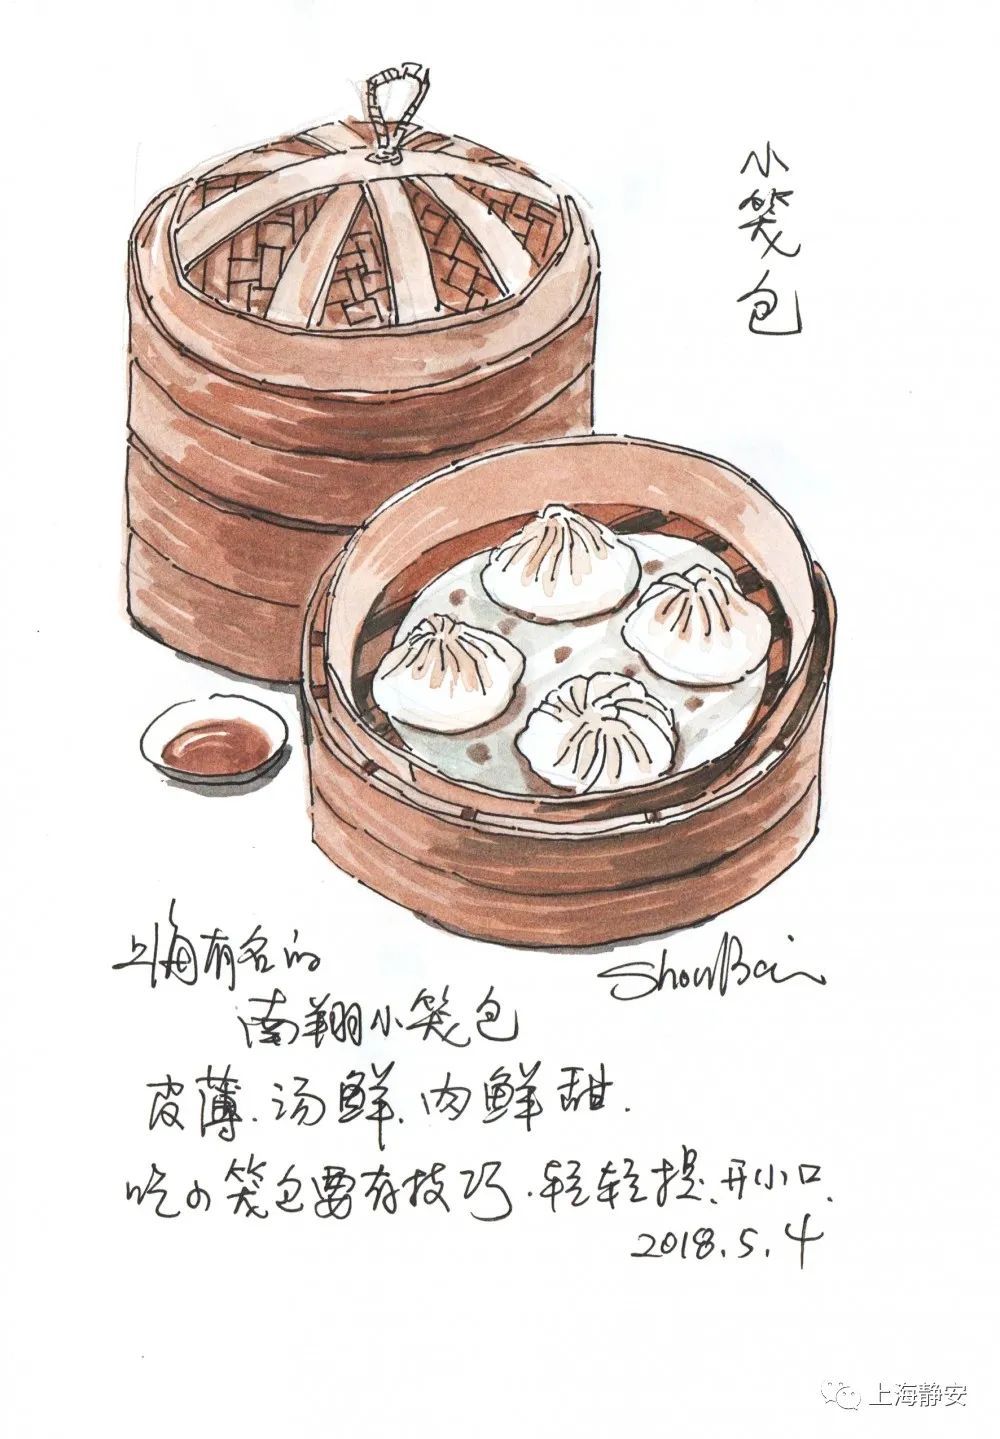 小笼包
上海有名的
ShouBai
南翔小笼包
皮薄.汤鲜.肉鲜甜.
吃小笼包要有技巧.轻轻提.开小口.
2018.5.4
上海静安